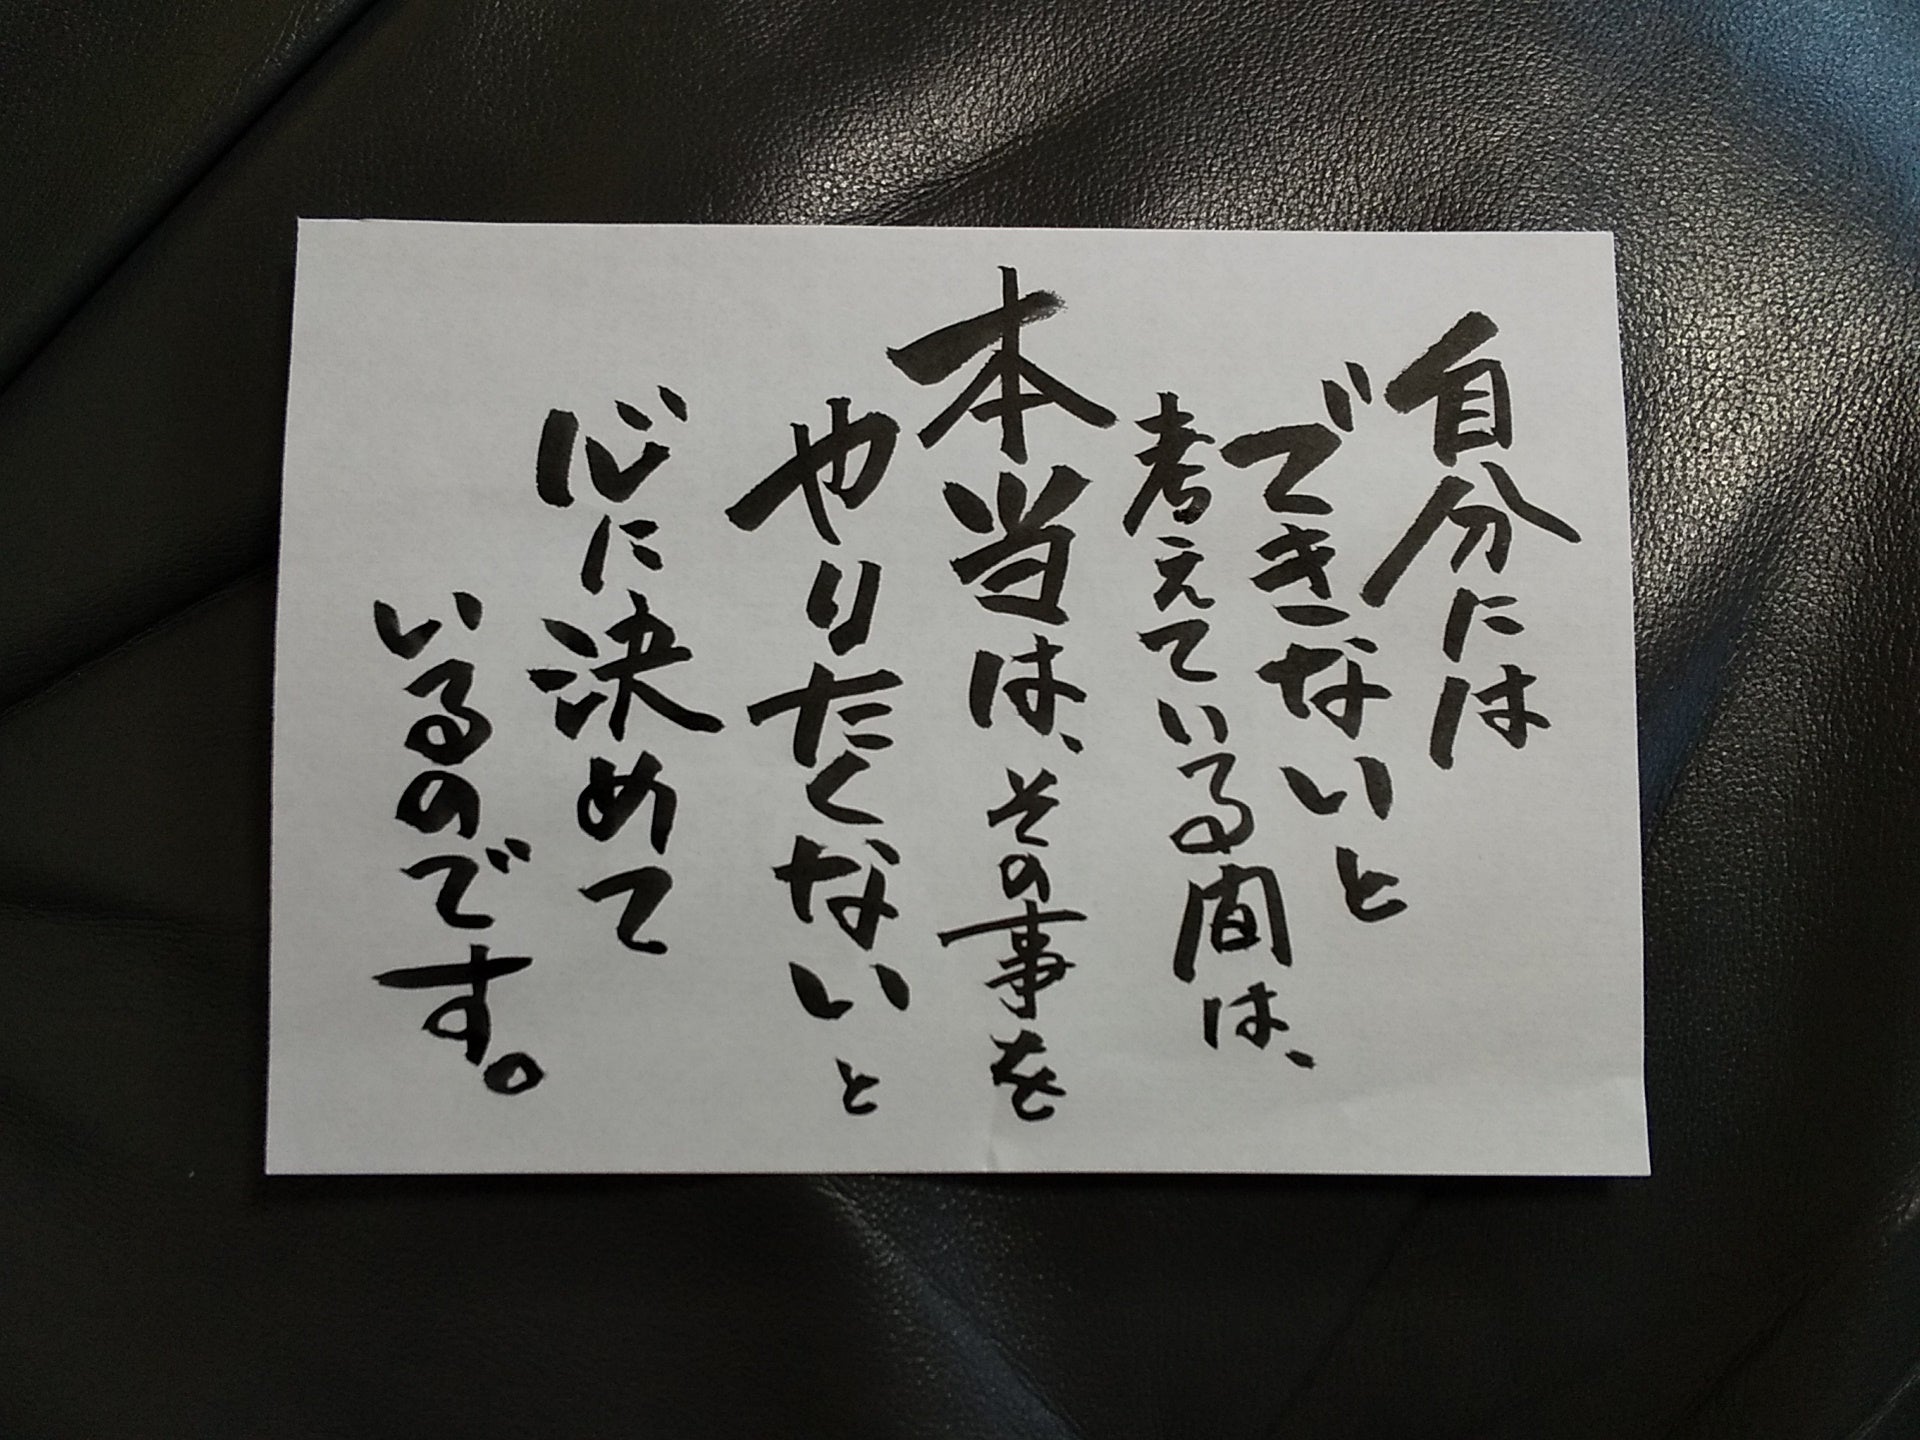 自分には
できないと
考えている間は、
本当は、その事を
やりたくないと
心に決めて
いるのです。